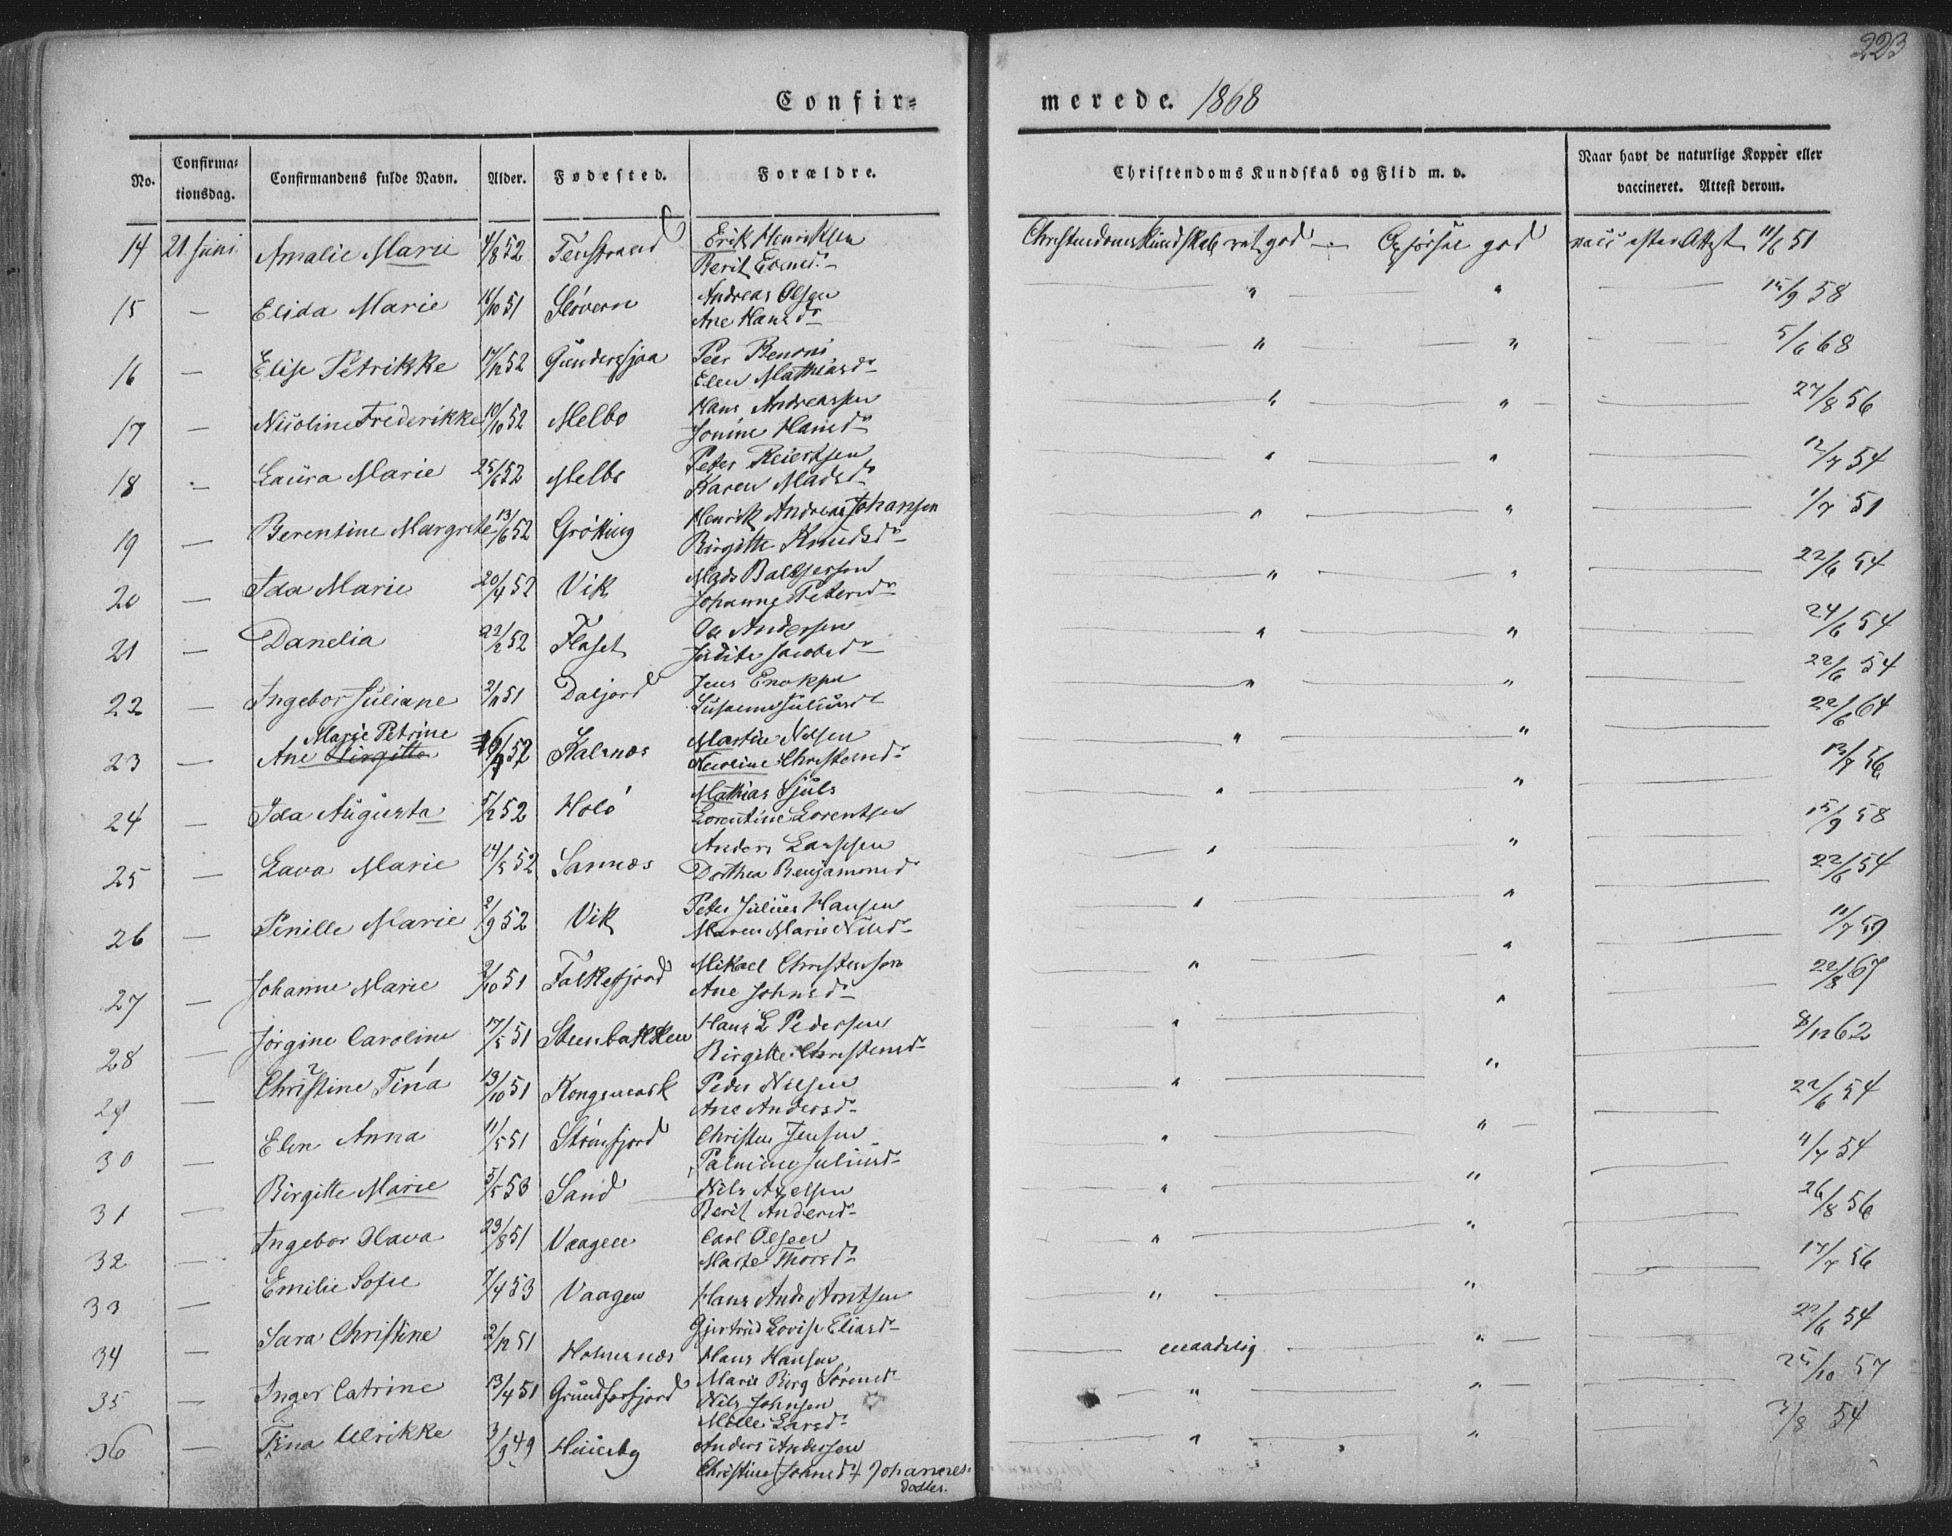 223
Confir=
merede. 1868
No.
Confirma=
tionsdag.
Confirmandens fulde Navn.
Alder.
Fødested.
Forældre.
Christendoms Kundskab og Flid m. v.
Naar havt de naturlige Kopper eller
vaccineret. Attest derom.
14 21 Juni Amalie Marie 4/8 52 Erik Henriksen Christendomskundskab ret god — Opførsel god vacc efter Attest 11/6 51
Berit d.
15 — Elida Marie 51 Andreas Olsen " " 15/9 58
Ane Hansd.
16 — Elise Petrikke 52 Peer Benoni " " 5/6 68
Elen Mathiasd.
17 — Nicoline Frederikke 10/10 52 Melbo Hans Andreassen " " 27/8 56
Jonine Hansd.
18 — Laura Marie 25/6 52 Melbo Peter Reiertsen " " 12/7 54
Karen Madsd.
19 — Berentine Margrete 13/6 52 Grötting Henrik Andreas Johansen " " 1/7 51
Birgitte Knudsd.
20 — Ida Marie 20/4 52 Vik Mads Baltsersen " " 22/6 54
Johanne Petersd.
21 — Danelia 22/2 52 Flaset Ole Andersen " " 24/6 54
Jacobsd.
22 — Ingebor Juliane 51 Daljord Jens " " 22/6 54
Juliusd.
Marie Petrine
23 — Ane Birgitte 52 Kalsnæs Martin Nilsen " " 22/6 64
Nicoline Christensd.
24 — Ida Augusta 52 Holö Mathias Sjuls " " 13/7 56
Lorentine Lorentsen
25 — Lava Marie 14/5 52 Sannæs Anders Larssen " " 15/9 58
Dorthea Benjamonsd.
26 — Pernille Marie 2/9 52 Vik Peter Julius Hansen " " 22/6 54
Maren Marie Nilsd.
27 — Johanne Marie 2/10 51 Falkefjord Mikael Christensen " " 11/7 59
Ane Johnsd.
28 — Jörgine Caroline 17/5 51 Steenbakken Hans L Pedersen " " 22/8 67
Birgitte Christensd.
29 Christine Tina 13/10 51 Kongsmark Peder Nilsen " " 8/12 62
Ane Andersd.
30 — Elen Anna 11/5 51 Strömfjord Christen Jensen " " 22/6 54
Juliusd.
31 — Birgitte Marie 5/5 53 Sand Nils Axelsen " " 11/7 54
Berit Andersd.
32 — Ingebor Olava 29/8 51 Vaagen Carl Olsen " " 26/8 56
Marte Thorsd.
33 — Emilie Sofie 7/4 53 Vaagen Hans And. Arntsen " " 17/7 56
Gjertrud Lovise Eliasd.
34 — Sara Christine 2/12 51 Holmsnæs Hans Hansen maadelig " 22/6 54
Marie Birg Sörensd.
35 — Inger Catrine 13/4 51 Grundforfjord Nils Johnsen " " 25/10 57
Mille Larsd.
36 — Tina Ulrikke 3/9 49 Anders Andersen " " 3/8 54
Christine (Johnsd.) Johannes
datter.